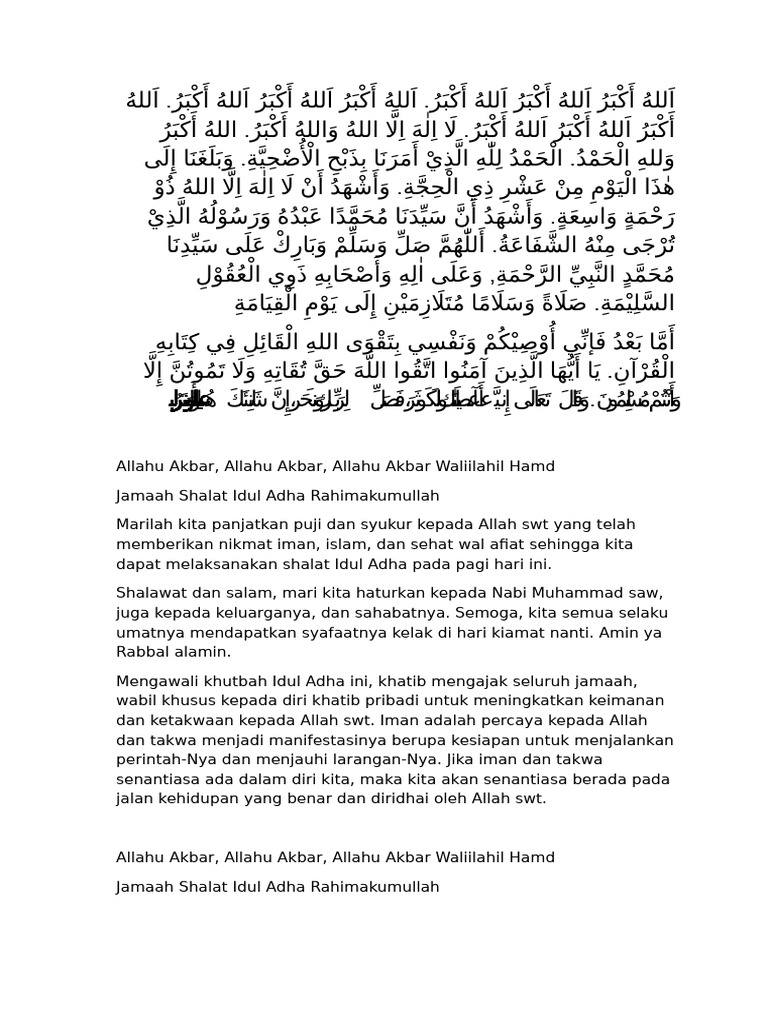 اَللهُ أَكْبَرُ اَللهُ أَكْبَرُ اَللهُ أَكْبَرُ. اَللهُ أَكْبَرُ اَللهُ أَكْبَرُ اَللهُ أَكْبَرُ. اَللهُ
أَكْبَرُ اَللهُ أَكْبَرُ اَللهُ أَكْبَرُ. لَا اِلٰهَ اِلَّا اللهُ وَاللهُ أَكْبَرُ. اللهُ أَكْبَرُ
وَللهِ الْحَمْدُ. الْحَمْدُ لِلّٰهِ الَّذِيْ أَمَرَنَا بِذَبْحِ الْأُضْحِيَّةِ. وَبَلَغَنَا إِلَى
هٰذَا الْيَوْمِ مِنْ عَشْرِ ذِي الْحِجَّةِ. وَأَشْهَدُ أَنْ لَا اِلٰهَ اِلَّا اللهُ ذُوْ
رَحْمَةٍ وَاسِعَةٍ. وَأَشْهَدُ أَنَّ سَيِّدَنَا مُحَمَّدًا عَبْدُهُ وَرَسُوْلُهُ الَّذِيْ
تُرْجَى مِنْهُ الشَّفَاعَةُ. أَللّٰهُمَّ صَلِّ وَسَلِّمْ وَبَارِكْ عَلَى سَيِّدِنَا
مُحَمَّدٍ النَّبِيِّ الرَّحْمَةِ, وَعَلَى اٰلِهِ وَأَصْحَابِهِ ذَوِي الْعُقُوْلِ
السَّلِيْمَةِ. صَلَاةً وَسَلَامًا مُتَلَازِمَيْنِ إِلَى يَوْمِ الْقِيَامَةِ
أَمَّا بَعْدُ فَإِنِّي أُوْصِيْكُمْ وَنَفْسِي بِتَقْوَى اللهِ الْقَائِلِ فِي كِتَابِهِ
الْقُرْآنِ. يَا أَيُّهَا الَّذِينَ آمَنُوا اتَّقُوا اللَّهَ حَقَّ تُقَاتِهِ وَلَا تَمُوتُنَّ إِلَّا
وَأَنْتُمْ مُسْلِمُونَ. وَقَالَ تَعَالَى
Allahu Akbar, Allahu Akbar, Allahu Akbar Waliilahil Hamd
Jamaah Shalat Idul Adha Rahimakumullah
Marilah kita panjatkan puji dan syukur kepada Allah swt yang telah
memberikan nikmat iman, islam, dan sehat wal afiat sehingga kita
dapat melaksanakan shalat Idul Adha pada pagi hari ini.
Shalawat dan salam, mari kita haturkan kepada Nabi Muhammad saw,
juga kepada keluarganya, dan sahabatnya. Semoga, kita semua selaku
umatnya mendapatkan syafaatnya kelak di hari kiamat nanti. Amin ya
Rabbal alamin.
Mengawali khutbah Idul Adha ini, khatib mengajak seluruh jamaah,
wabil khusus kepada diri khatib pribadi untuk meningkatkan keimanan
dan ketakwaan kepada Allah swt. Iman adalah percaya kepada Allah
dan takwa menjadi manifestasinya berupa kesiapan untuk menjalankan
perintah-Nya dan menjauhi larangan-Nya. Jika iman dan takwa
senantiasa ada dalam diri kita, maka kita akan senantiasa berada pada
jalan kehidupan yang benar dan diridhai oleh Allah swt.
Allahu Akbar, Allahu Akbar, Allahu Akbar Waliilahil Hamd
Jamaah Shalat Idul Adha Rahimakumullah